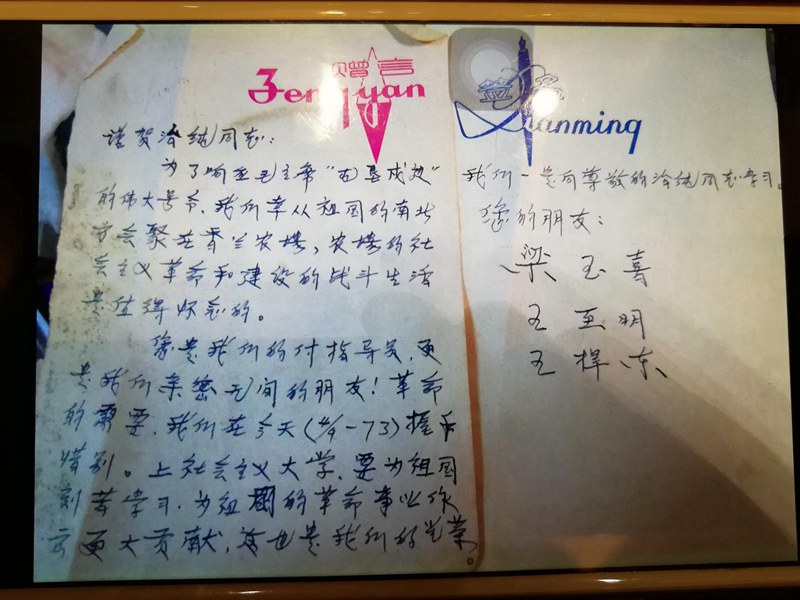 赠言
Zeng yan
谨贺冷纯同志:
为了响应毛主席"
的伟大号令,我们草从祖国的南北
方会聚在香兰农场,农场的社
会主义革命和建设的战斗生活
是值得怀念的。
您是我们的付指导员,更
是我们亲密无间的朋友!革命
的需要,我们在今天(4/9-73)握手
惜别。上社会主义大学,要为祖国
刻苦学习,为祖国的革命事业作
出更大贡献,这也是我们的光荣。
Qianming
我们一定向尊敬的冷纯同志学习。
您的朋友:
梁玉喜
王亚明
王桿东